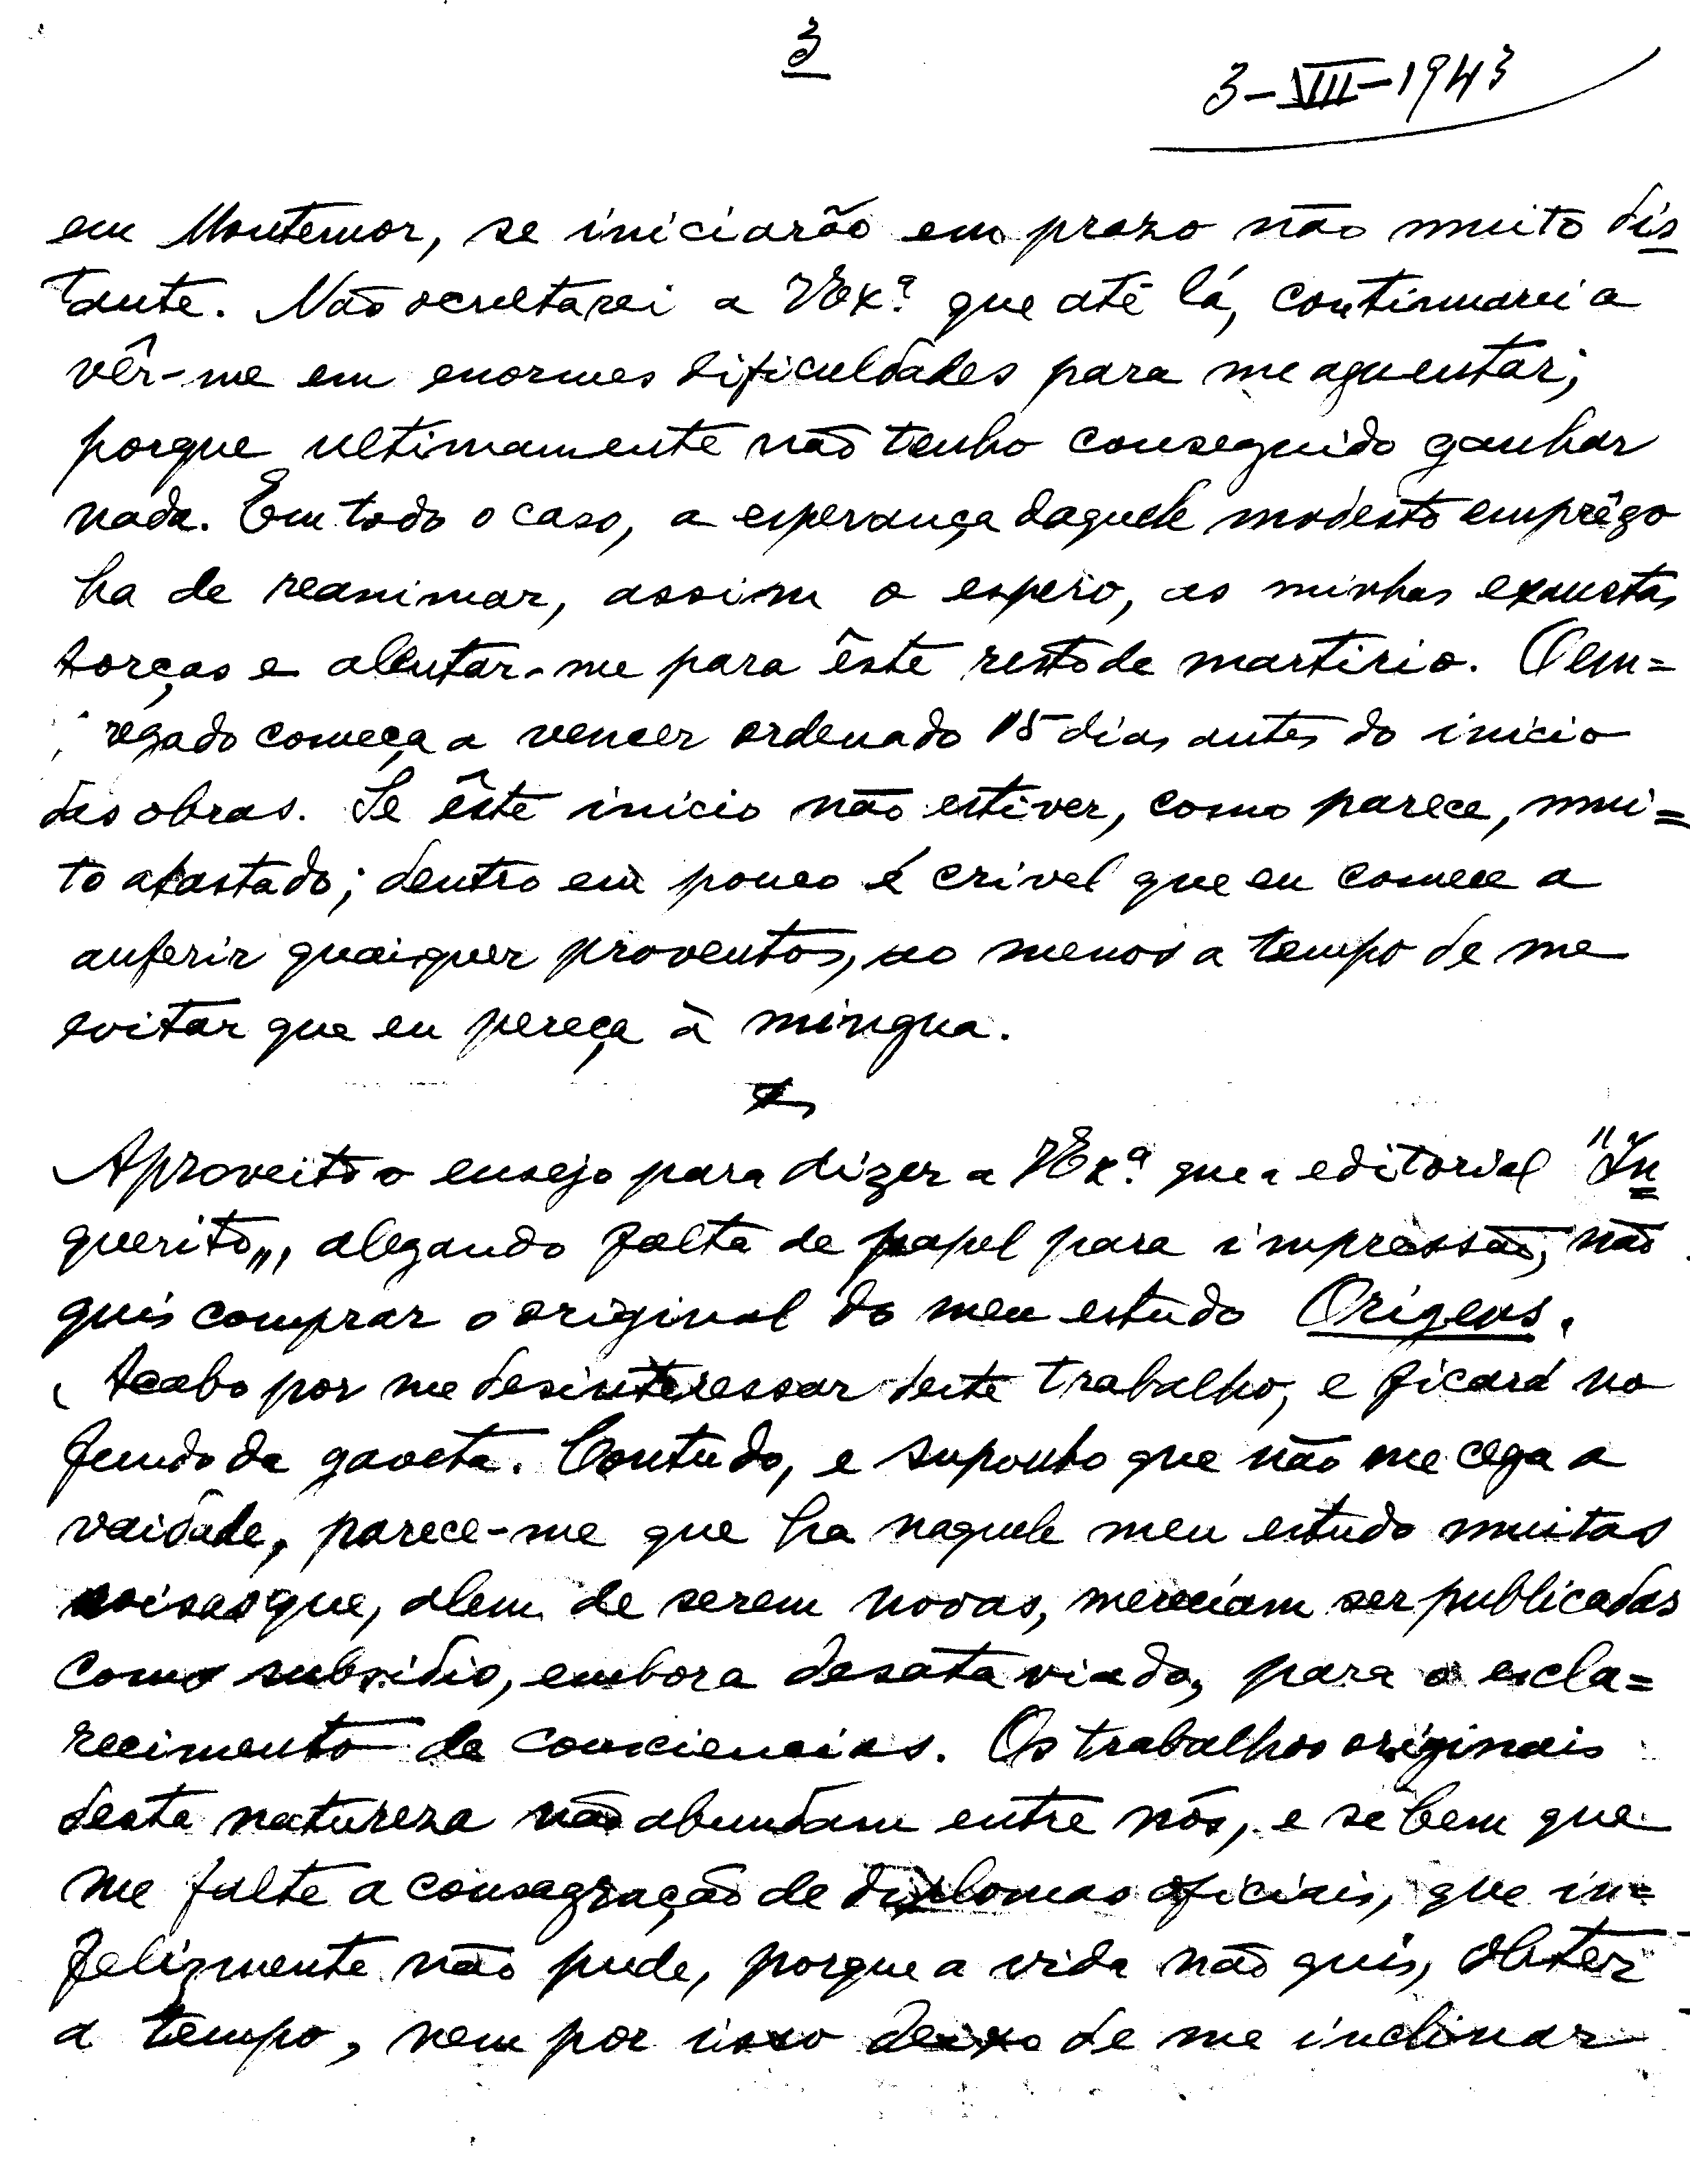 3
3-VII-1943
em Montemor, se iniciarão em prazo não muito dis
tante. Não ocultarei a VExª que até lá, continuarei a
vêr-me em enormes dificuldades para me aguentar;
porque ultimamente não tenho conseguido ganhar
nada. Em todo o caso, a esperança daquele modesto emprêgo
ha de reanimar, assim o espero, as minhas exaustas
forças e alentar-me para êste resto de martirio. O em=
regado começa a vencer ordenado 15 dias antes do inicio
das obras. Se êste inicio não estiver, como parece, mui=
to afastado; dentro em pouco é crivel que eu comece a
auferir quaiquer proventos, ao menos a tempo de me
evitar que eu pereça à mingua.
Aproveito o ensejo para dizer a VExª que a editorial "In
querito", alegando falta de papel para impressão, não
quis comprar o original do meu estudo Origens.
Acabo por me desinteressar deste trabalho, e ficará no
fundo da gaveta. Contudo, e suponho que não me cega a
vaidade, parece-me que ha naquele meu estudo muitas
coisas que, alem de serem novas, mereciam ser publicadas
como subsidio, embora desataviado, para o escla=
recimento de consciencias. Os trabalhos originais
desta natureza não abundam entre nós, e se bem que
me falte a consagração de diplomas oficiais, que in=
felizmente não pude, porque a vida não quis, obter
a tempo, nem por isso deixo de me inclinar